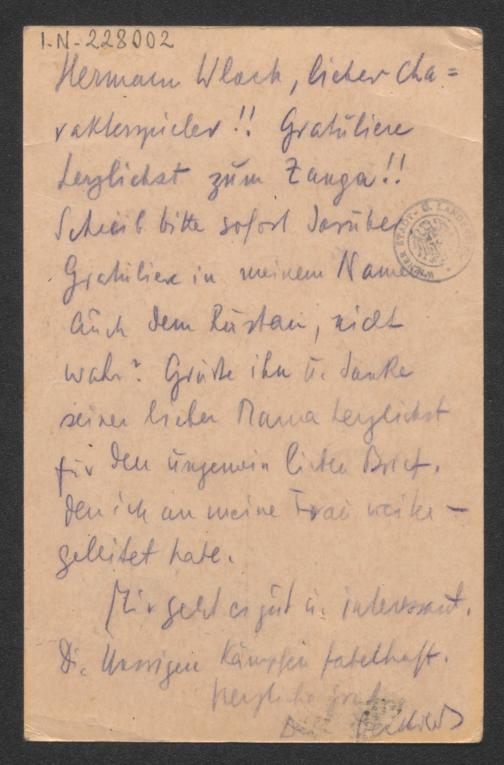 I.N-228002
Hermann Wlach, lieber Cha=
rakterspieler!! Gratuliere
herzlichst zum Zanga!!
Schreib bitte sofort darüber
Gratuliere in meinem Namen
auch dem Rustan, nicht
wahr? Grüße ihn u. danke
seiner lieben Mama herzlichst
für den ungemein lieben Brief,
den ich an meine Frau weiter-
geleitet habe.
Mir geht es gut u. interessant.
Die Unsrigen kämpfen fabelhaft.
Herzliche Grüße
WIENER STADT- U. LANDES